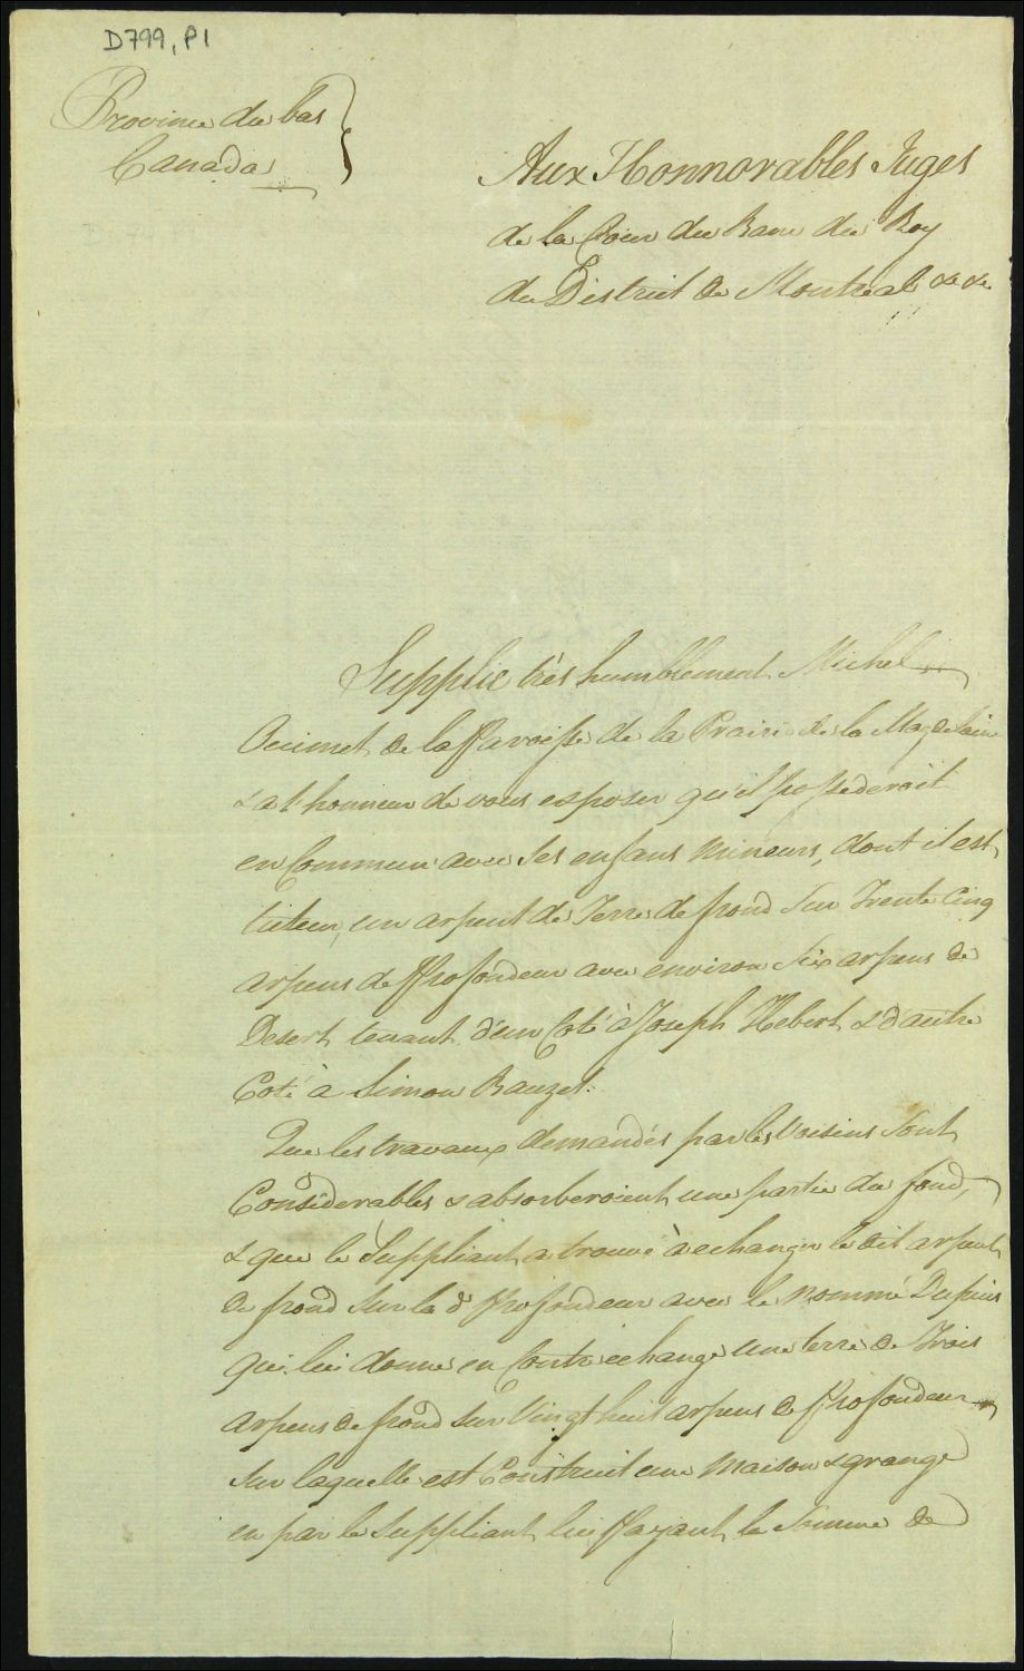 D799, P1
Province du bas
Canada
Aux Honnorables Juges
de la Cour du Banc du Roy
du District de Montreal &c &c.
Supplie très humblement Michel
Ouimet de la Paroisse de la Prairie de la Magdelaine
& a l'honneur de vous exposer qu'il possederoit
en Commun avec ses enfans mineurs, dont il est
tuteur, un arpent de Terre de frond sur Trente Cinq
arpens de Profondeur avec environ six arpens de
Desert tenant d'un Coté à Joseph Hebert & d'autre
Coté à Simon
Que les travaux demandés par les Voisins sont
Considerables & absorberoient une partie du fond,
& que le Suppliant a trouvé à echanger le dit arpent
de frond sur la d profondeur avec le nommé Dupuis
qui lui donne en Contre echange une terre de Trois
arpens de frond sur Vingt huit arpens de Profondeur
sur laquelle est Construit une maison & grange
en par le Suppliant lui Payant la Somme de